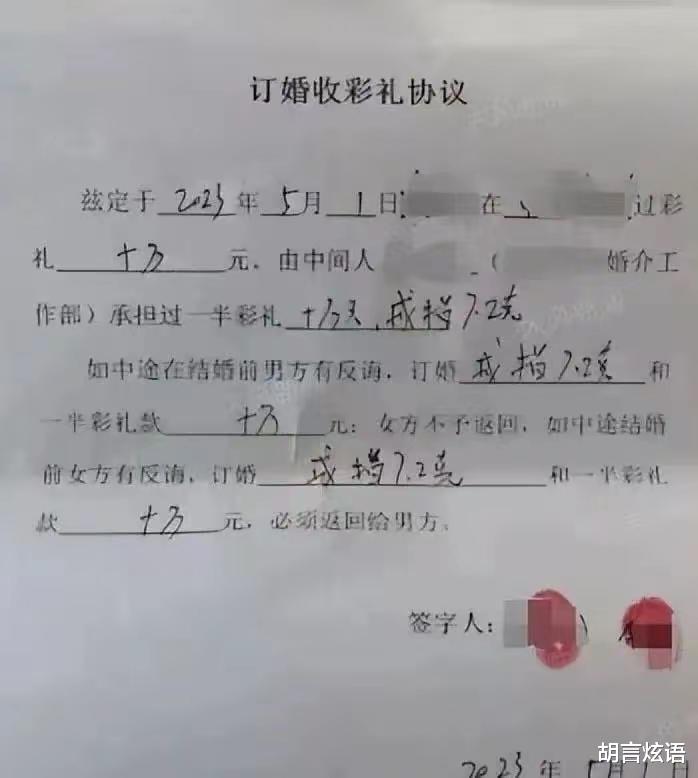 订婚收彩礼协议
兹定于 2023 年 5 月 1 日 在 过彩
礼 十万 元。由中间人 ( 婚介工
作部）承担过一半彩礼 十万元，戒指7.2克
如中途在结婚前男方有反诲，订婚 戒指7.2克 和
一半彩礼款 十万 元；女方不予返回，如中途结婚
前女方有反诲，订婚 戒指7.2克 和一半彩礼
款 十万 元，必须返回给男方。
签字人：
2023 年 5月 1日
胡言炫语